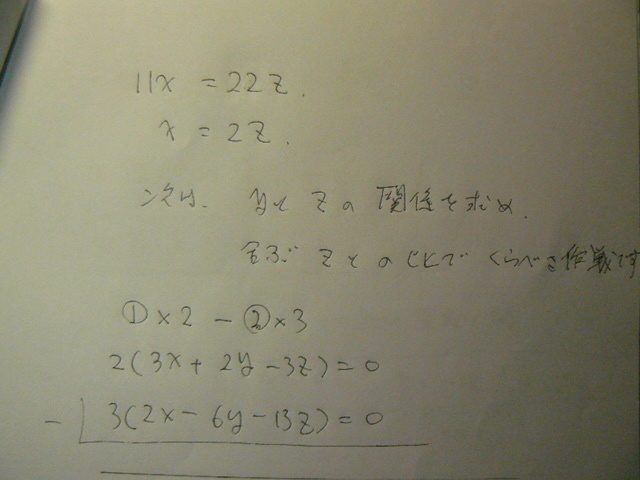 11x = 22z.
x = 2z.
次は、yとzの関係を求め、
全ぶzとの比でくらべる作戦です
①×2 - ②×3
2(3x + 2y - 3z) = 0
- 3(2x - 6y - 13z) = 0